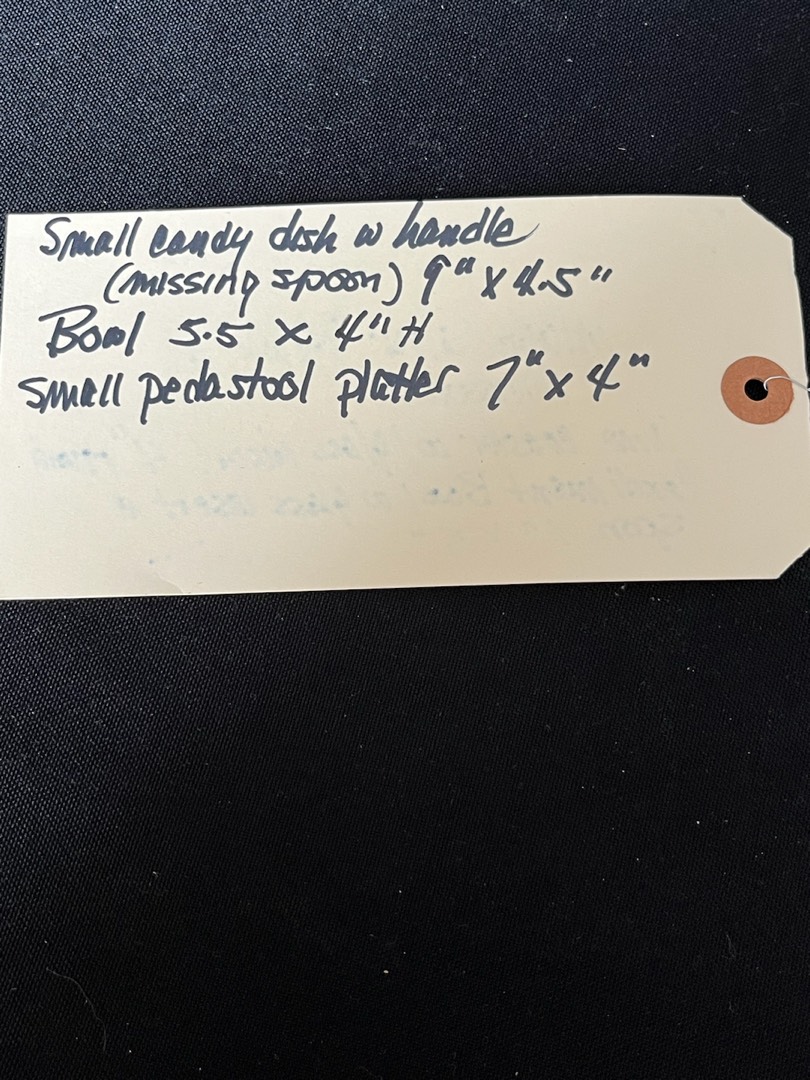 Small candy dish w handle
(missing spoon) 9" X 4.5"
Bowl 5.5 x 4" H
small pedastool platter 7" x 4"